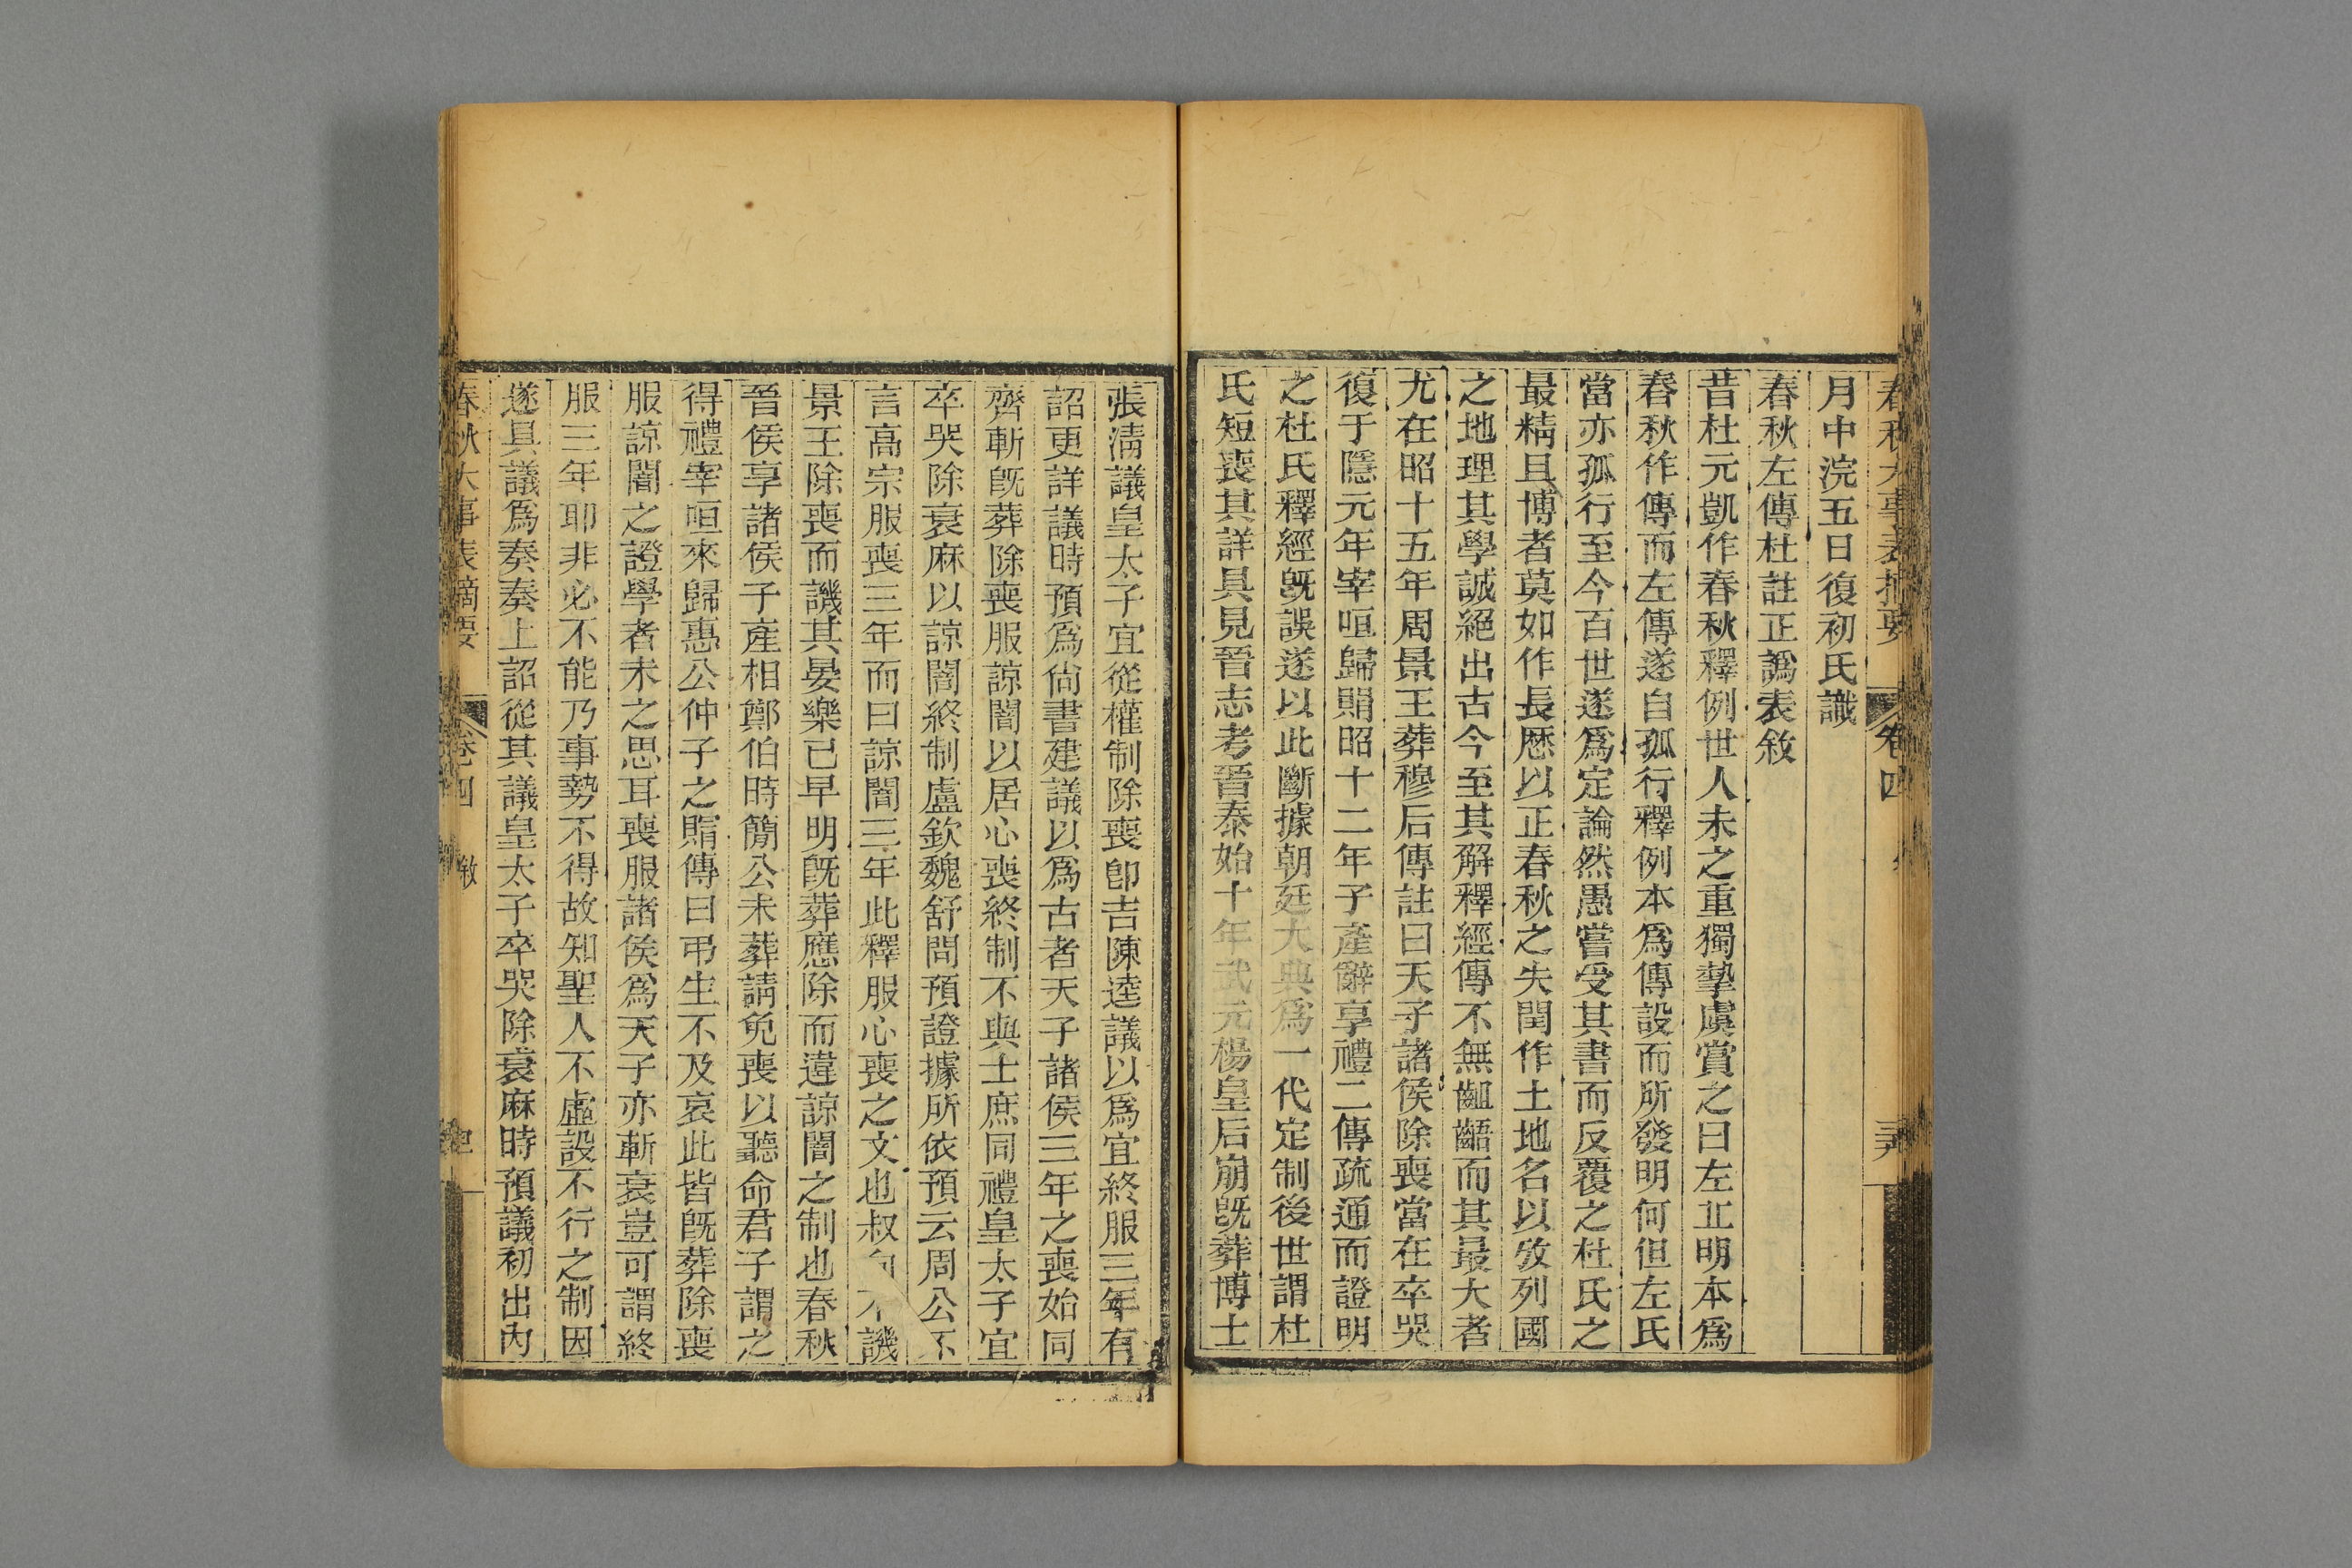 春秋大事表摘要 卷四
月中浣五日復初氏識
春秋左傳杜註正譌表敘
昔杜元凱作春秋釋例世人未之重獨摯虞賞之曰左丘明本爲
春秋作傳而左傳遂自孤行釋例本爲傳設而所發明何但左氏
當亦孤行至今百世遂爲定論然愚嘗受其書而反覆之杜氏之
最精且博者莫如作長歷以正春秋之失閏作土地名以攷列國
之地理其學誠絕出古今至其解釋經傳不無齟齬而其最大者
尤在昭十五年周景王葬穆后傳註曰天子諸侯除喪當在卒哭
復于隱元年宰咺歸賵昭十二年子產辭享禮二傳疏通而證明
之杜氏釋經旣誤遂以此斷據朝廷大典爲一代定制後世謂杜
氏短喪其詳具見晉志考晉泰始十年武元楊皇后崩旣葬博士
張淸議皇太子宜從權制除喪卽吉陳逵議以爲宜終服三年有
詔更詳議時預爲尙書建議以爲古者天子諸侯三年之喪始同
齊斬旣葬除喪服諒闇以居心喪終制不與士庶同禮皇太子宜
卒哭除衰麻以諒闇終制盧欽魏舒問預證據所依預云周公不
言高宗服喪三年而曰諒闇三年此釋服心喪之文也叔向不譏
景王除喪而譏其晏樂已早明旣葬應除而違諒闇之制也春秋
晉侯享諸侯子產相鄭伯時簡公未葬請免喪以聽命君子謂之
得禮宰咺來歸惠公仲子之賵傳曰弔生不及哀此皆旣葬除喪
服諒闇之證學者未之思耳喪服諸侯爲天子亦斬衰豈可謂終
服三年耶非必不能乃事勢不得故知聖人不虛設不行之制因
遂具議爲奏奏上詔從其議皇太子卒哭除衰麻時預議初出內
春秋大事表摘要 卷四 敘